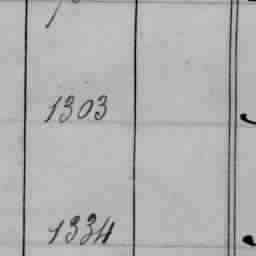 1303
1334